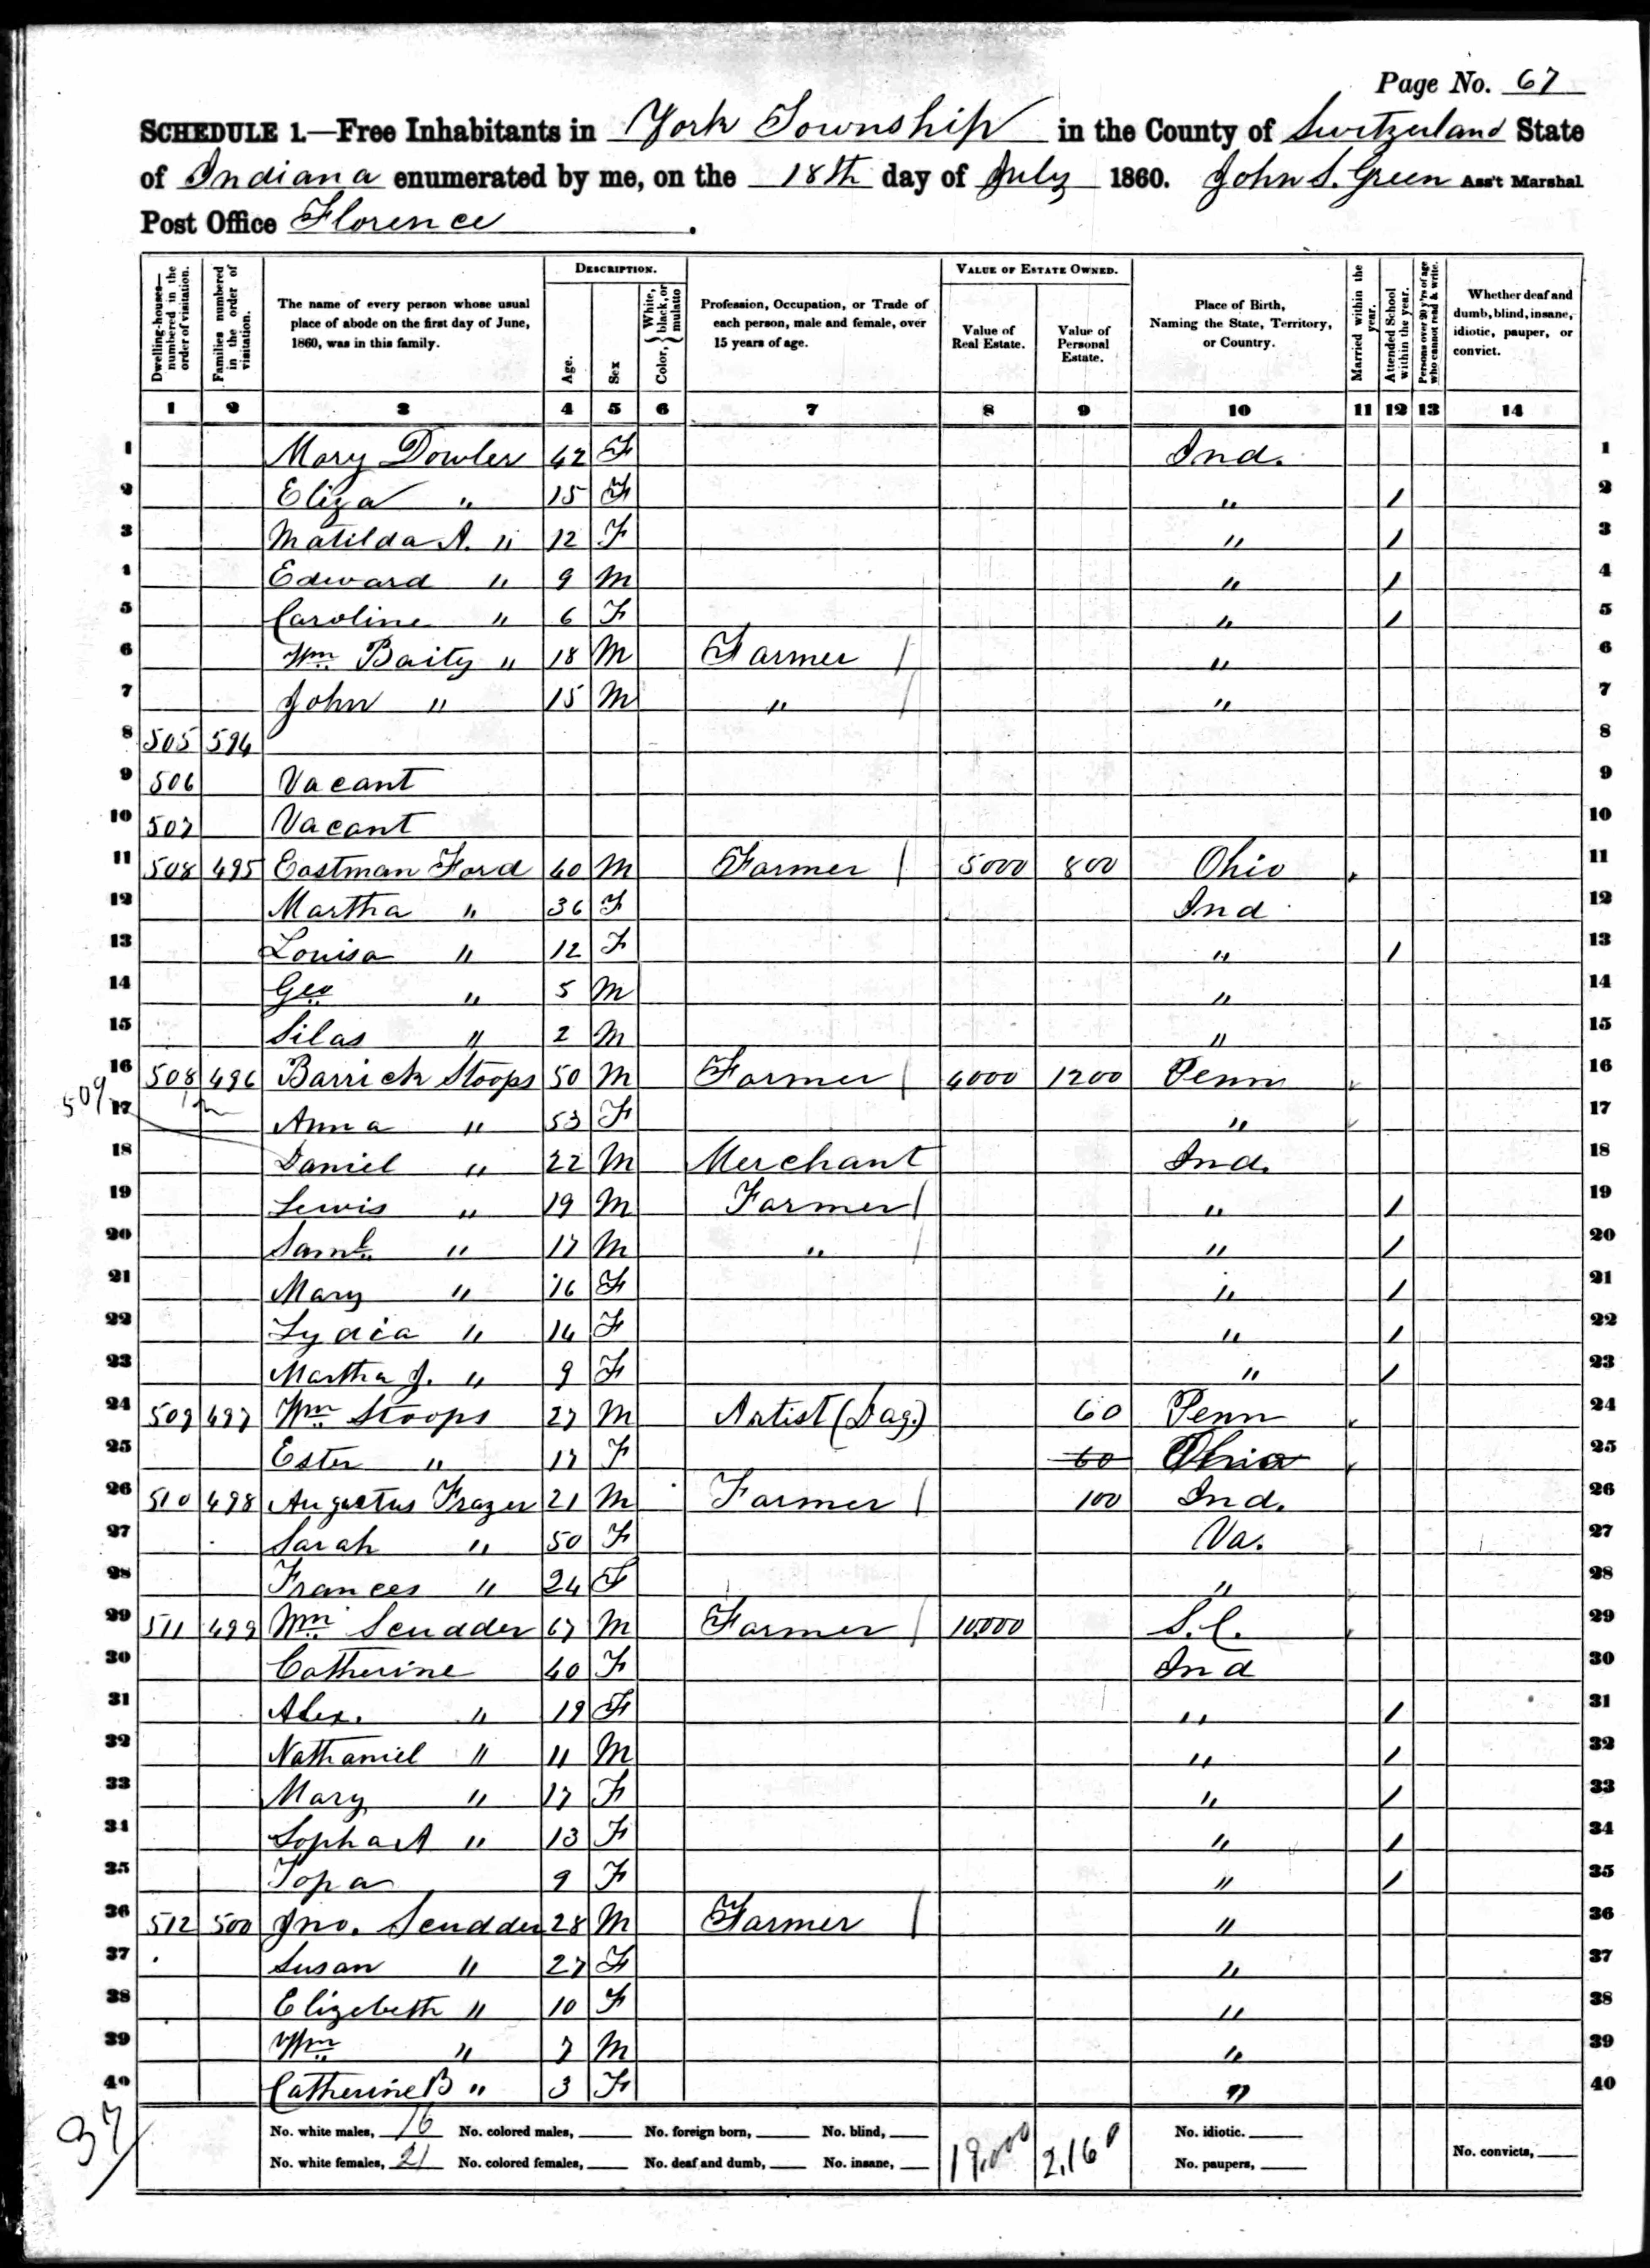 Page No. 67
SCHEDULE 1.—Free Inhabitants in York Township in the County of Switzerland State
of Indiana enumerated by me, on the 18th day of July 1860. John S. Green Ass't Marshal
Post Office Florence .
Dwelling-houses—numbered in the order of visitation.
Families numbered in the order of visitation.
The name of every person whose usual place of abode on the first day of June, 1860, was in this family.
DESCRIPTION.
Age.
Sex
Color, { White, black, or mulatto
Profession, Occupation, or Trade of each person, male and female, over 15 years of age.
VALUE OF ESTATE OWNED.
Value of Real Estate.
Value of Personal Estate.
Place of Birth, Naming the State, Territory, or Country.
Married within the year.
Attended School within the year.
Persons over 20 y'rs of age who cannot read & write.
Whether deaf and dumb, blind, insane, idiotic, pauper, or convict.
1 2 3 4 5 6 7 8 9 10 11 12 13 14
1 Mary Dowler 42 F Ind. 1
2 Eliza " 15 F " / 2
3 Matilda A. " 12 F " / 3
4 Edward " 9 M " / 4
5 Caroline " 6 F " / 5
6 Wm Baity " 18 M Farmer / " 6
7 John " 15 M " / " 7
8 505 594 8
9 506 Vacant 9
10 507 Vacant 10
11 508 495 Eastman Ford 40 M Farmer / 5000 800 Ohio 11
12 Martha " 36 F Ind 12
13 Louisa " 12 F " / 13
14 Geo " 5 M " 14
15 Silas " 2 M " 15
16 508 496 Barrick Stoops 50 M Farmer / 4000 1200 Penn 16
509 17 Anna " 53 F " 17
18 Daniel " 22 M Merchant Ind. 18
19 Lewis " 19 M Farmer / " / 19
20 Saml " 17 M " / " / 20
21 Mary " 16 F " / 21
22 Lydia " 14 F " / 22
23 Martha J. " 9 F " / 23
24 509 497 Wm Stoops 27 M Artist (Dag.) 60 Penn 24
25 Ester " 17 F 60 Ohio 25
26 510 498 Augustus Frazer 21 M Farmer / 100 Ind. 26
27 Sarah " 50 F Va. 27
28 Frances " 24 F " 28
29 511 499 Wm Scudder 67 M Farmer / 10,000 S.C. 29
30 Catherine 40 F Ind 30
31 Alex. " 19 F " / 31
32 Nathaniel " 11 M " / 32
33 Mary " 17 F " / 33
34 Sopha A " 13 F " / 34
35 Topa 9 F " / 35
36 512 500 Jno. Scudder 28 M Farmer / " 36
37 Susan " 27 F " 37
38 Elizebeth " 10 F " 38
39 Wm " 7 M " 39
40 Catherine B " 3 F " 40
37
No. white males, 16 No. colored males, No. foreign born, No. blind, 19,000 2,160 No. idiotic.
No. white females, 21 No. colored females, No. deaf and dumb, No. insane, No. paupers, No. convicts,